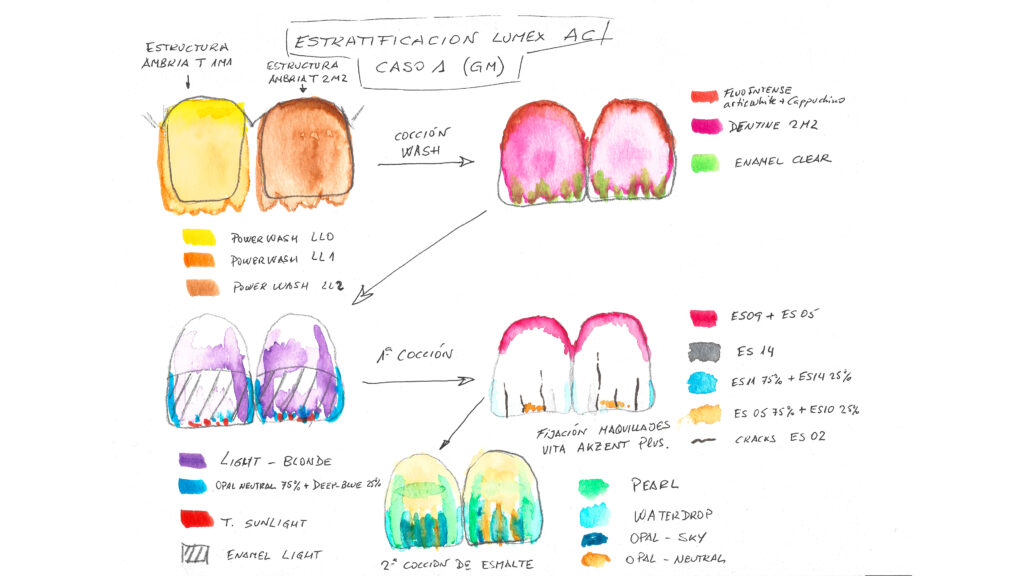 ESTRATIFICACION LUMEX AC
CASO 1 (GM)
ESTRUCTURA
AMBRIA T 1M1
ESTRUCTURA
AMBRIA T 2M2
COCCIÓN
WASH
FLUOINTENSE
articwhite + Cappuchino
DENTINE 2M2
ENAMEL CLEAR
POWERWASH LL0
POWERWASH LL1
POWER WASH LL2
1ª COCCIÓN
ES09 + ES 05
ES 14
ES11 75% + ES14 25%
ES 05 75% + ES10 25%
CRACKS ES 02
FIJACIÓN MAQUILLAJES
VITA AKZENT PLUS.
LIGHT - BLONDE
OPAL NEUTRAL 75% + DEEP-BLUE 25%
T. SUNLIGHT
ENAMEL LIGHT
2ª COCCION DE ESMALTE
PEARL
WATERDROP
OPAL - SKY
OPAL - NEUTRAL